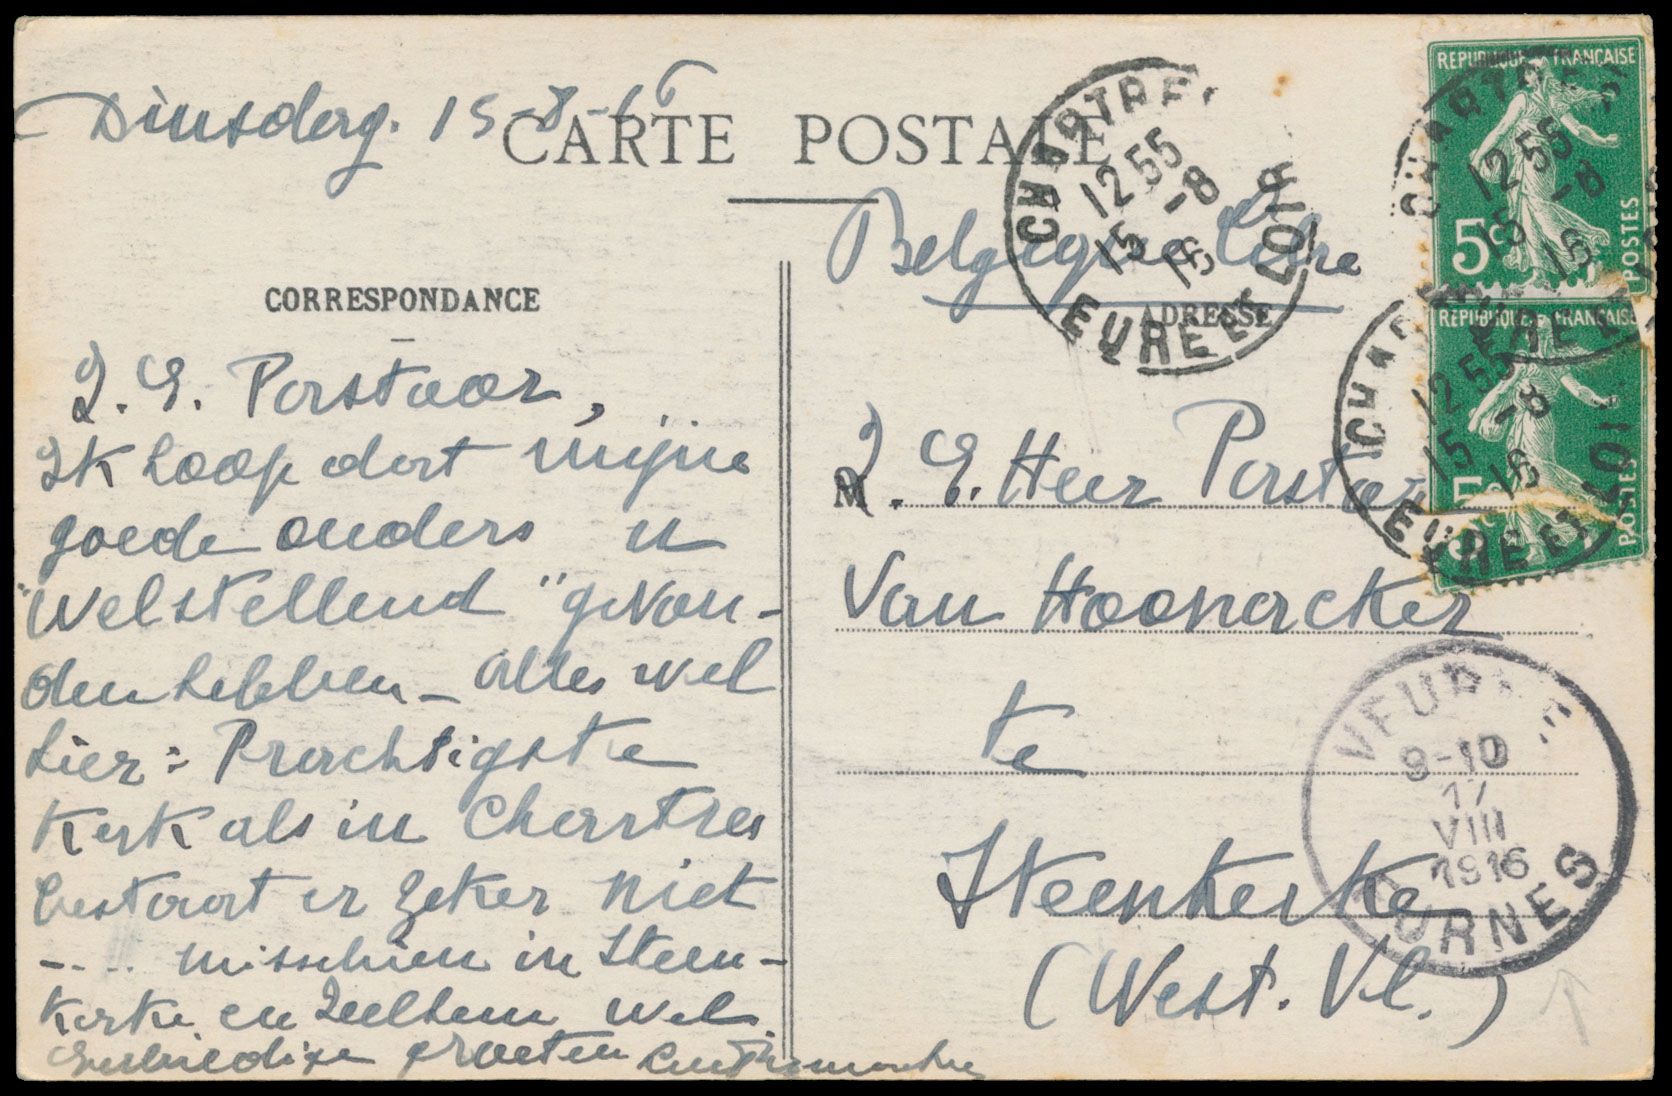 Dinsdag. 15-8-16
CARTE POSTALE
CORRESPONDANCE
Z. E. Pastoor,
Ik hoop dat mijne
goede ouders u
"Welstellend" gevon-
den hebben - alles wel
hier: Prachtigste
Kerk als in Chartres
bestaat er zeker niet
-... misschien in Steen-
kerke en Zulthem wel.
Eerbiedige groeten
Belgique Libre
ADRESSE
M
Z. E. Heer Pastoor
Van Hoonacker
te
Steenkerke
(West. Vl.)
CHARTRES
12 55
15 -8
16
EURE ET LOIR
REPUBLIQUE FRANÇAISE
5c
POSTES
CHARTRES
12 55
15 -8
16
REPUBLIQUE FRANÇAISE
5c
POSTES
CHAR
12 55
15 -8
16
EURE ET LOIR
VEURNE
9-10
17
VIII
1916
FURNES